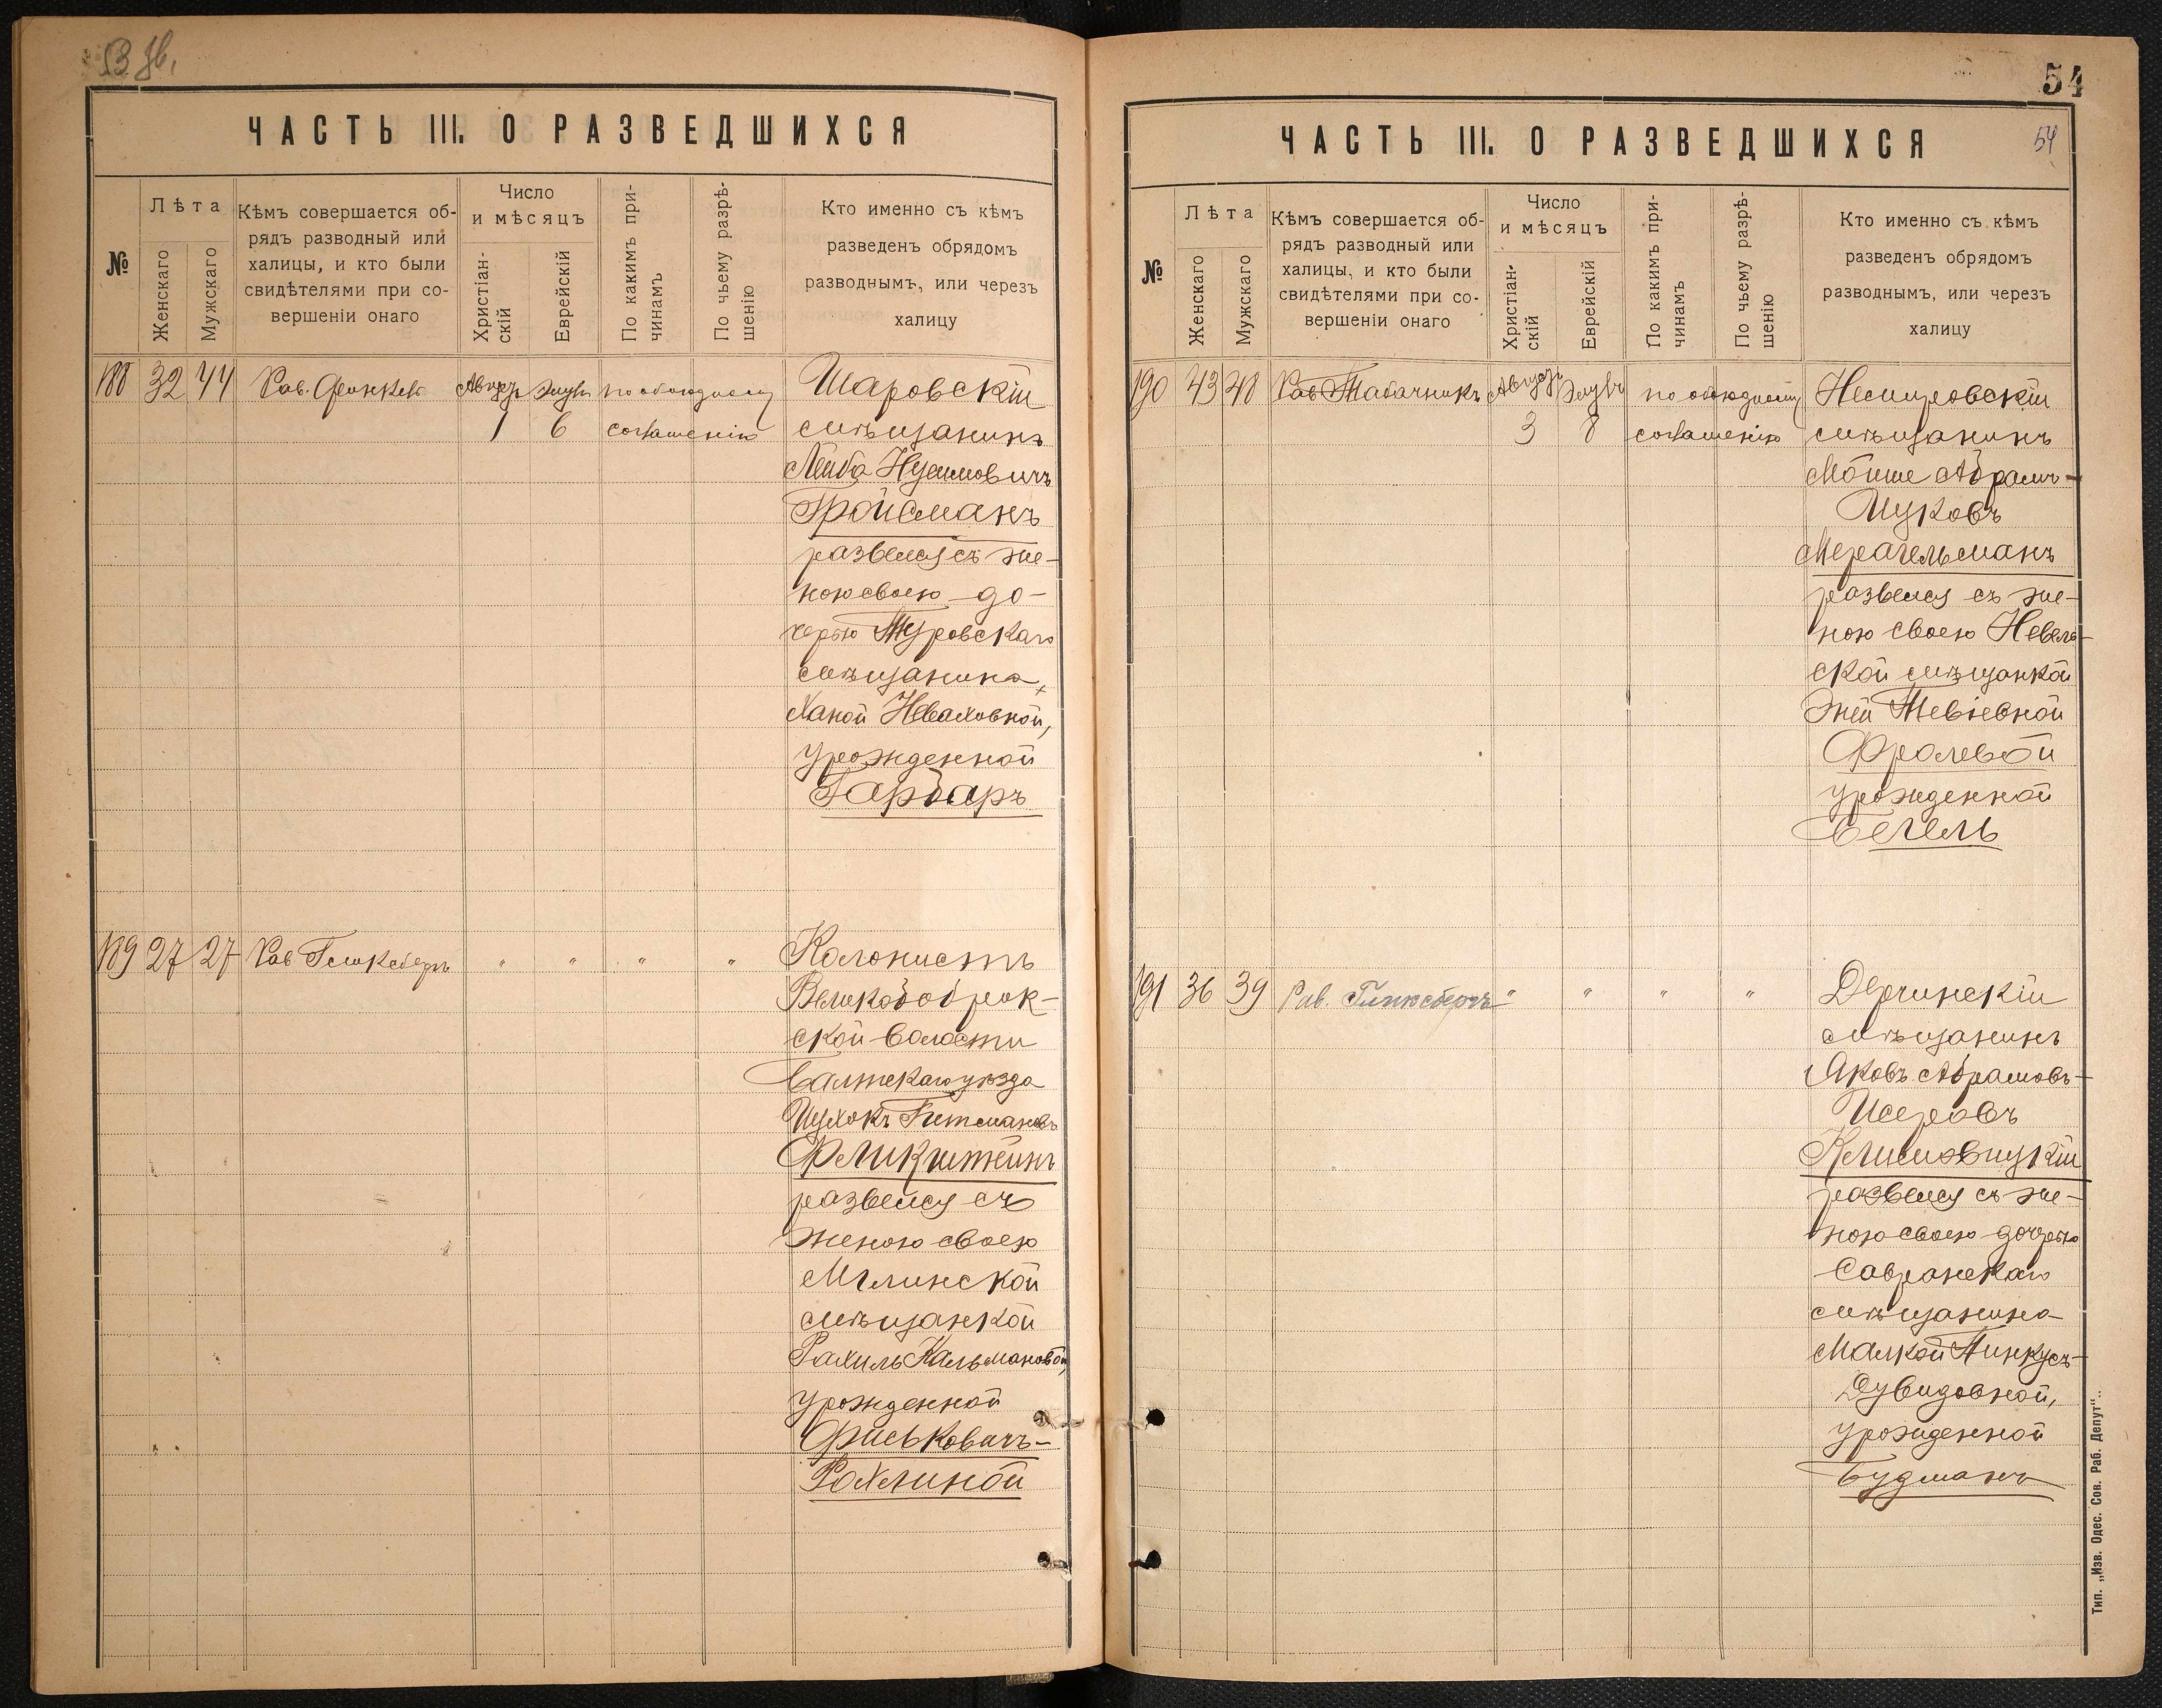 53 об.
ЧАСТЬ III. О РАЗВЕДШИХСЯ
№
Лѣта
Женскаго
Мужскаго
Кѣмъ совершается об-
рядъ разводный или
халицы, и кто были
свидѣтелями при со-
вершеніи онаго
Число
и мѣсяцъ
Христіан-
скій
Еврейскій
По какимъ при-
чинамъ
По чьему разрѣ-
шенію
Кто именно съ кѣмъ
разведенъ обрядомъ
разводнымъ, или черезъ
халицу
188 32 44 Рав. Август Элулъ по обоюдному Шаровскій
1 6 соглашенію мѣщанинъ
Лейба Нусимовичъ
Гройсманъ
развелся съ же-
ною своею до-
черью Туровскаго
мѣщанина
Ханой Неваховной,
урожденной
Гарбаръ
189 27 27 Рав Гликсбергъ " " " " Колонистъ
Великобобрик-
ской волости
Балтскаго уѣзда
Ицхокъ Гитмановъ
Фликштейнъ
развелся съ
женою своею
Мглинской
мѣщанкой
Рахиль Кальмановой,
урожденной
Фиськовичъ-
Рохлиной
54
ЧАСТЬ III. О РАЗВЕДШИХСЯ
54
№
Лѣта
Женскаго
Мужскаго
Кѣмъ совершается об-
рядъ разводный или
халицы, и кто были
свидѣтелями при со-
вершеніи онаго
Число
и мѣсяцъ
Христіан-
скій
Еврейскій
По какимъ при-
чинамъ
По чьему разрѣ-
шенію
Кто именно съ кѣмъ
разведенъ обрядомъ
разводнымъ, или черезъ
халицу
190 43 48 Рав Табачникъ Август Элулъ по обоюдному Немировскій
3 8 соглашенію мѣщанинъ
Мойше Абрамъ-
Ицковъ
Мерагельманъ
развелся съ же-
ною своею Невель-
ской мѣщанкой
Эней Тевіевной
Фролевой
урожденной
Бегель
191 36 39 Рав. Гликсбергъ " " " " Дерчинскій
мѣщанинъ
Яковъ Абрамовъ-
Исеровъ
Климовицкій
развелся съ же-
ною своею дочерью
Савранскаго
мѣщанина
Малкой Пинкусъ-
Дувидовной,
урожденной
Будманъ
Тип. „Изв. Одес. Сов. Раб. Депут“.